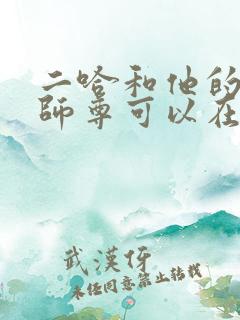 二哈和他的
師尊可以在
武漢伢
未經同意禁止轉載